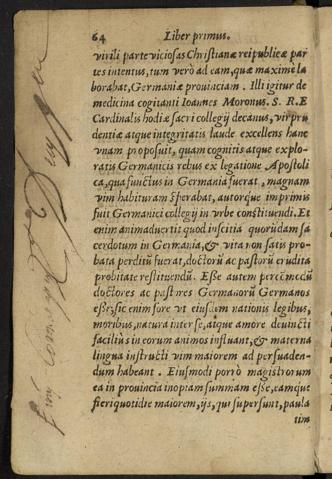 64 Liber primus.
virili parte viciosas Christianæ reipublicæ par
tes intentus, tum verò ad eam, quæ maximè la
borabat, Germaniæ prouinciam. Illi igitur de
medicina cogitanti Ioannes Moronus. S. R. E
Cardinalis hodiæ sacri collegij decanus, vir pru
dentiæ atque integritatis laude excellens hanc
vnam proposuit, quam cognitis atque explo-
ratis Germanicis rebus ex legatione Apostoli
ca, qua functus in Germania fuerat, magnam
vim habituram sperabat, autorque imprimis
fuit Germanici collegij in vrbe constituendi. Et
enim animaduertit quod inscitia quorūdam sa
cerdotum in Germania, & vita non satis pro-
bata perditū fuerat, doctorū ac pastorū erudita
probitate restituendū. Esse autem percōmodū
doctores ac pastores Germanorū Germanos
esse; sic enim fore vt eiusdem nationis legibus,
moribus, natura inter se, atque amore deuincti
facilius in eorum animos influant, & materna
lingua instructi vim maiorem ad persuaden-
dum habeant. Eiusmodi porrò magistrorum
ea in prouincia inopiam summam esse, eamque
fieri quotidie maiorem, ijs, qui supersunt, paula
tim